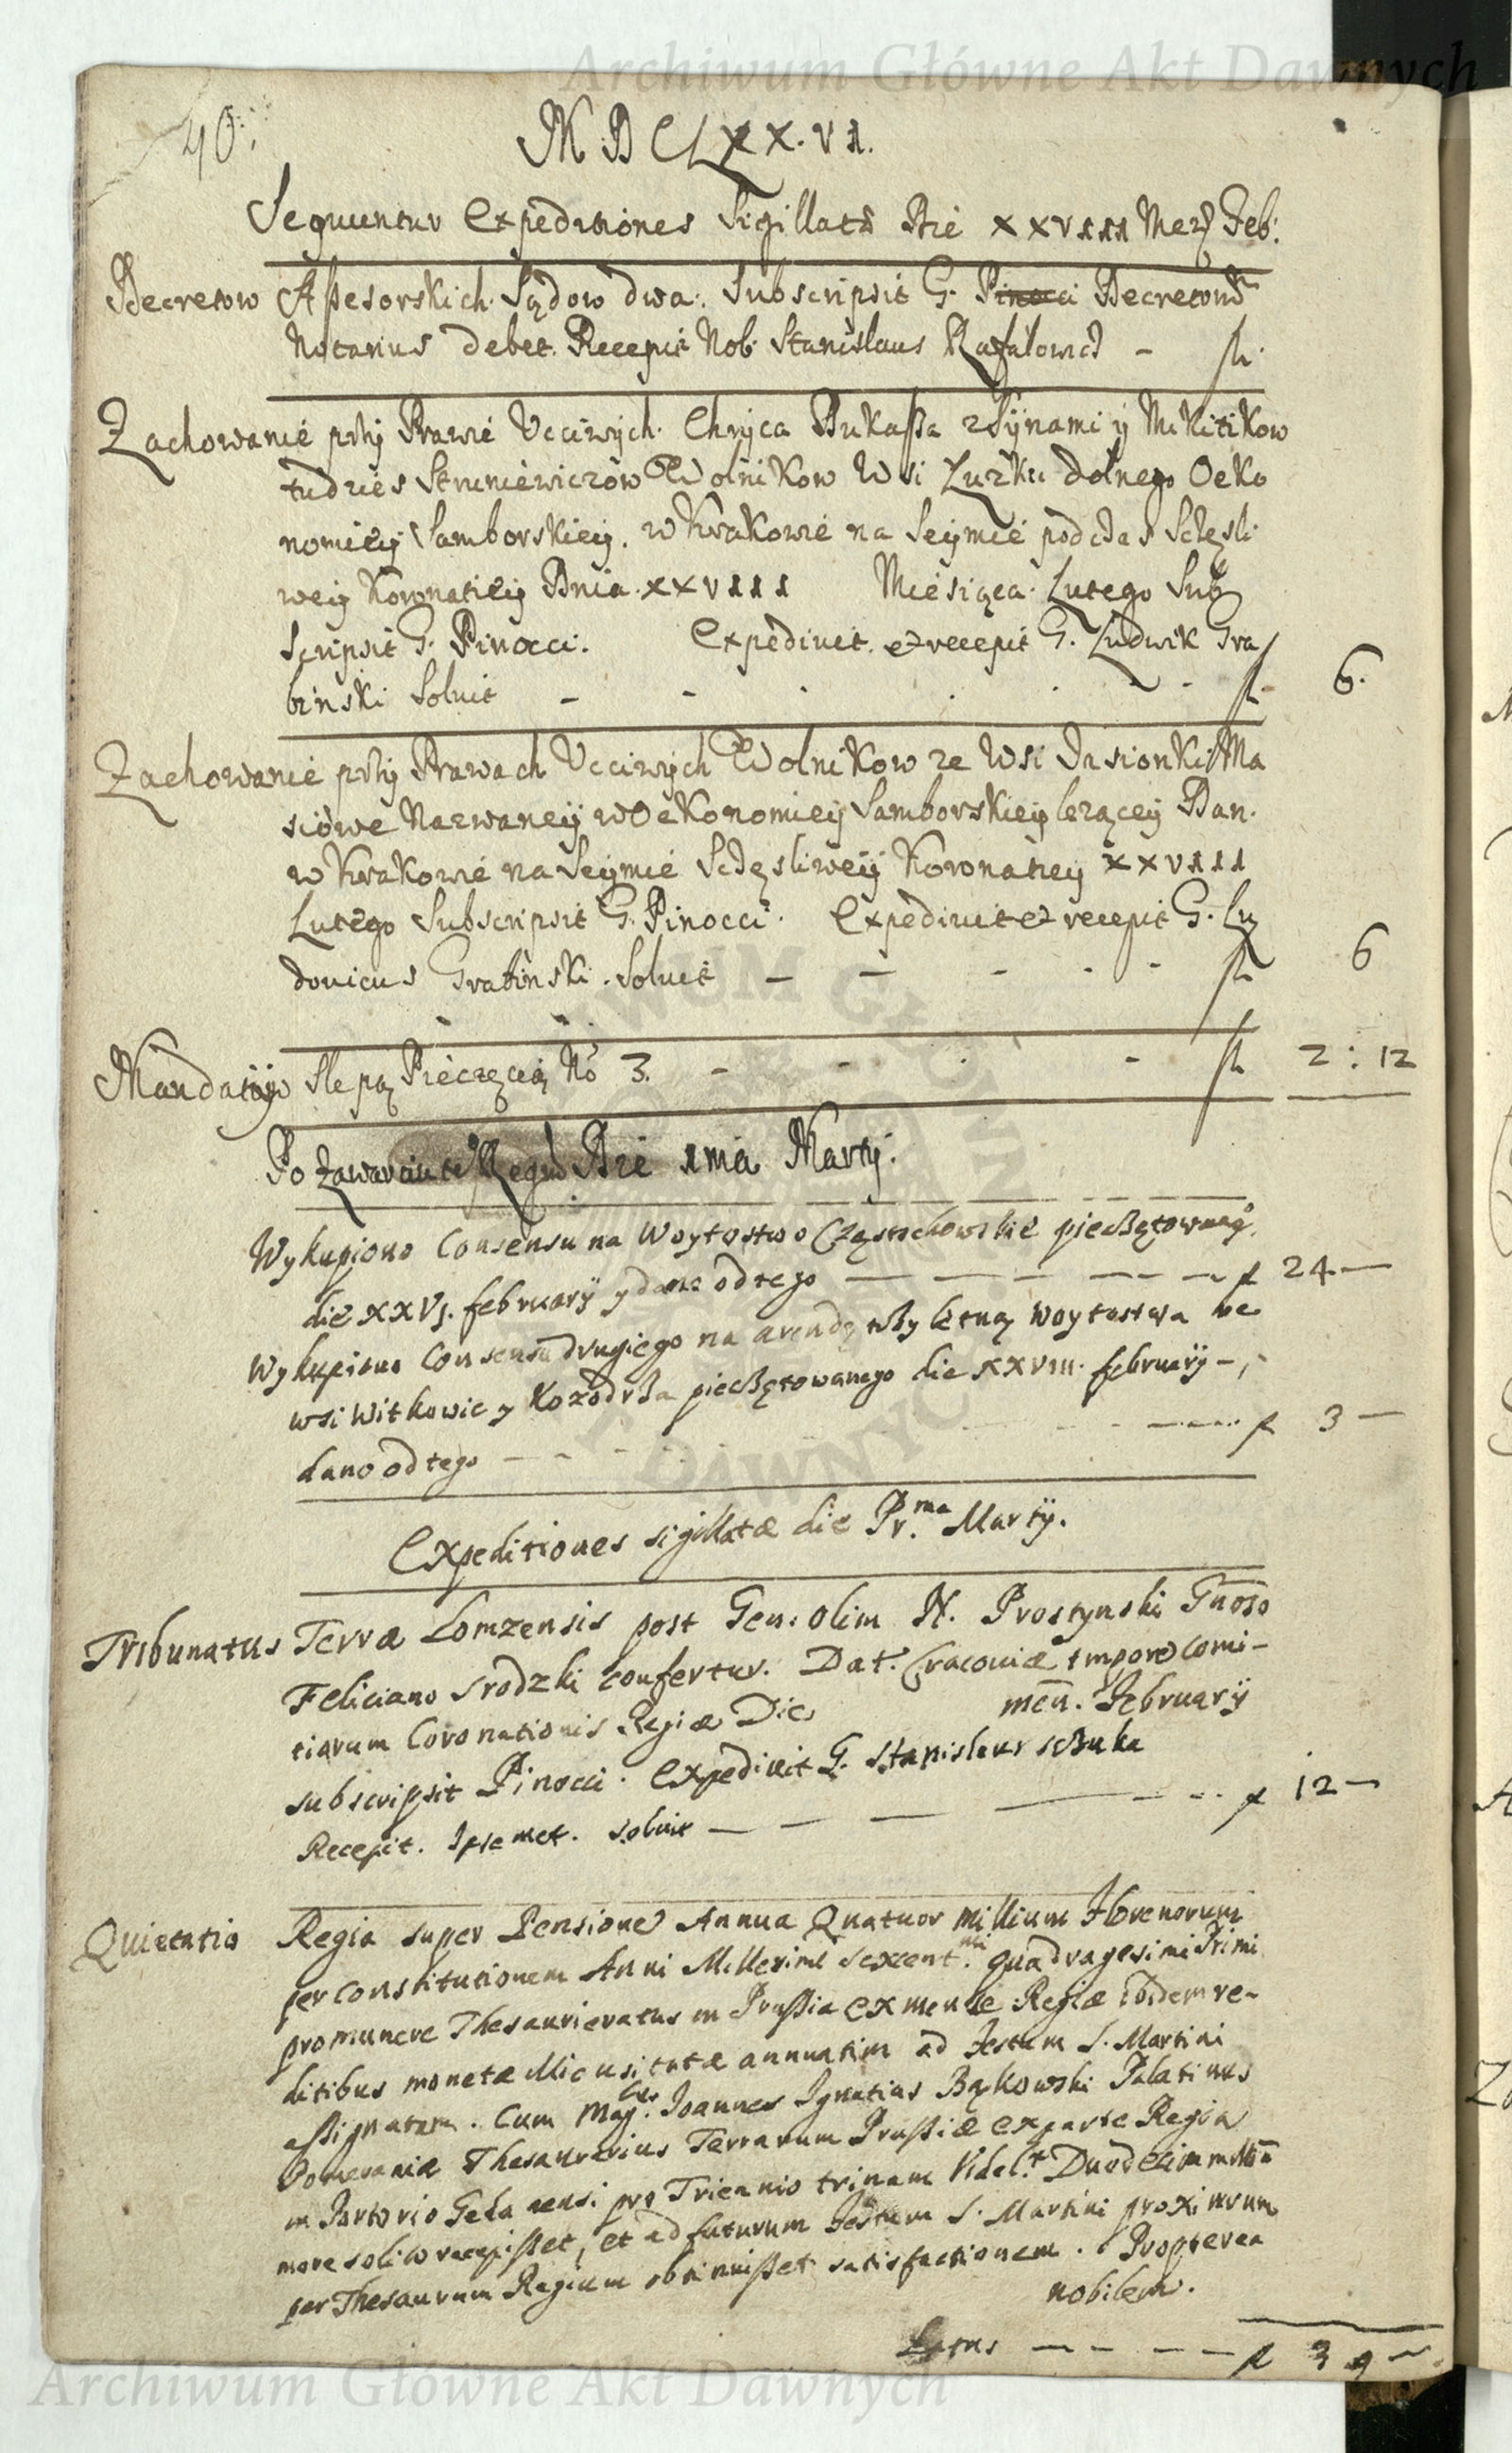 Archiwum Główne Akt Dawnych
40.
MDCLXX.VI.
Sequuntur Expeditiones Sigillatæ Die XXVIII Mens Feb:
Decretow Assesorskich Sądow dwa. Subscripsit G. Pinocci Decretorum
Notarius debet. Recepit Nob. Stanislaus Rafalowicz - fl.
Zachowanie przy Prawie Ucciwych Chryca Dukassa z Synami y Mikitikow
tudzies Struniewiczow Wolnikow Wsi Zuzku dolnego Oeko
nomiey Samborskiey. w Krakowie na Seymie podczas Sczęsli
wey Koronatiey Dnia XXVIII Miesiąca Lutego Sub
scripsit G. Pinocci. Expedivit et recepit G. Ludwik Gra
binski Soluit - - - fl. 6.
Zachowanie przy Prawach Ucciwych Wolnikow ze Wsi Jasionki Ma
siowe Nazwaney w Oekonomiey Samborskiey lezącey Dan.
w Krakowie na Seymie Sczęsliwey Koronatiey XXVIII
Lutego Subscripsit G. Pinocci. Expedivit et recepit G. Lu
dovicus Grabinski. Soluit - - - fl 6
Mandatow Slepą Pieczęcią No 3. - - - fl 2 : 12
Po zawarciu te Regu Die 1ma Martij.
Wykupiono Consensu na Woytostwo Częstochowskie pieczętowaneg°
die XXVJ. februarij y dano od tego - - - f 24 -
Wykupiono Consensu drugiego na arendę trzyletną woytostwa we
wsi Witkowic y Kozodrza pieczętowanego die XXVIII. februarij -
dano od tego - - - f 3 -
Expeditiones sigillatæ die Pr.ma Martij.
Tribunatus Terræ Lomzensis post Gen: olim N. Prostynski Gnoso
Feliciano Srodzki confertur. Dat. Cracoviæ tmpore comi-
tiarum Coronationis Regiæ Die men. February
subscripsit Pinocci. Expedivit G. Stanislaus Szczuka
Recepit. Ipsemet. soluit - - - f 12 -
Quietatio Regia super Pensione Annua Quatuor Millium Florenorum
per constitutionem Anni Millesimi Sexcent.mi quadragesimi Primi
pro munere Thesaurieratus in Prussia ex mensæ Regiæ ibidem re-
ditibus monetæ illic usitatæ annuatim ad Festum S. Martini
assignatam. Cum Mag.cus Joannes Ignatius Bąkowski Palatinus
Pomeraniæ Thesaurarius Terrarum Prussiæ ex parte Regia
in Portorio Gedanensi pro Triennio trinam Videl.t Duodecim milliā
more solito recepisset, et ad futurum Festum S. Martini proximum
per Thesaurum Regium obtinuisset satisfactionem. Propterea
nobilem.
Latus - - - f 39 -
Archiwum Główne Akt Dawnych